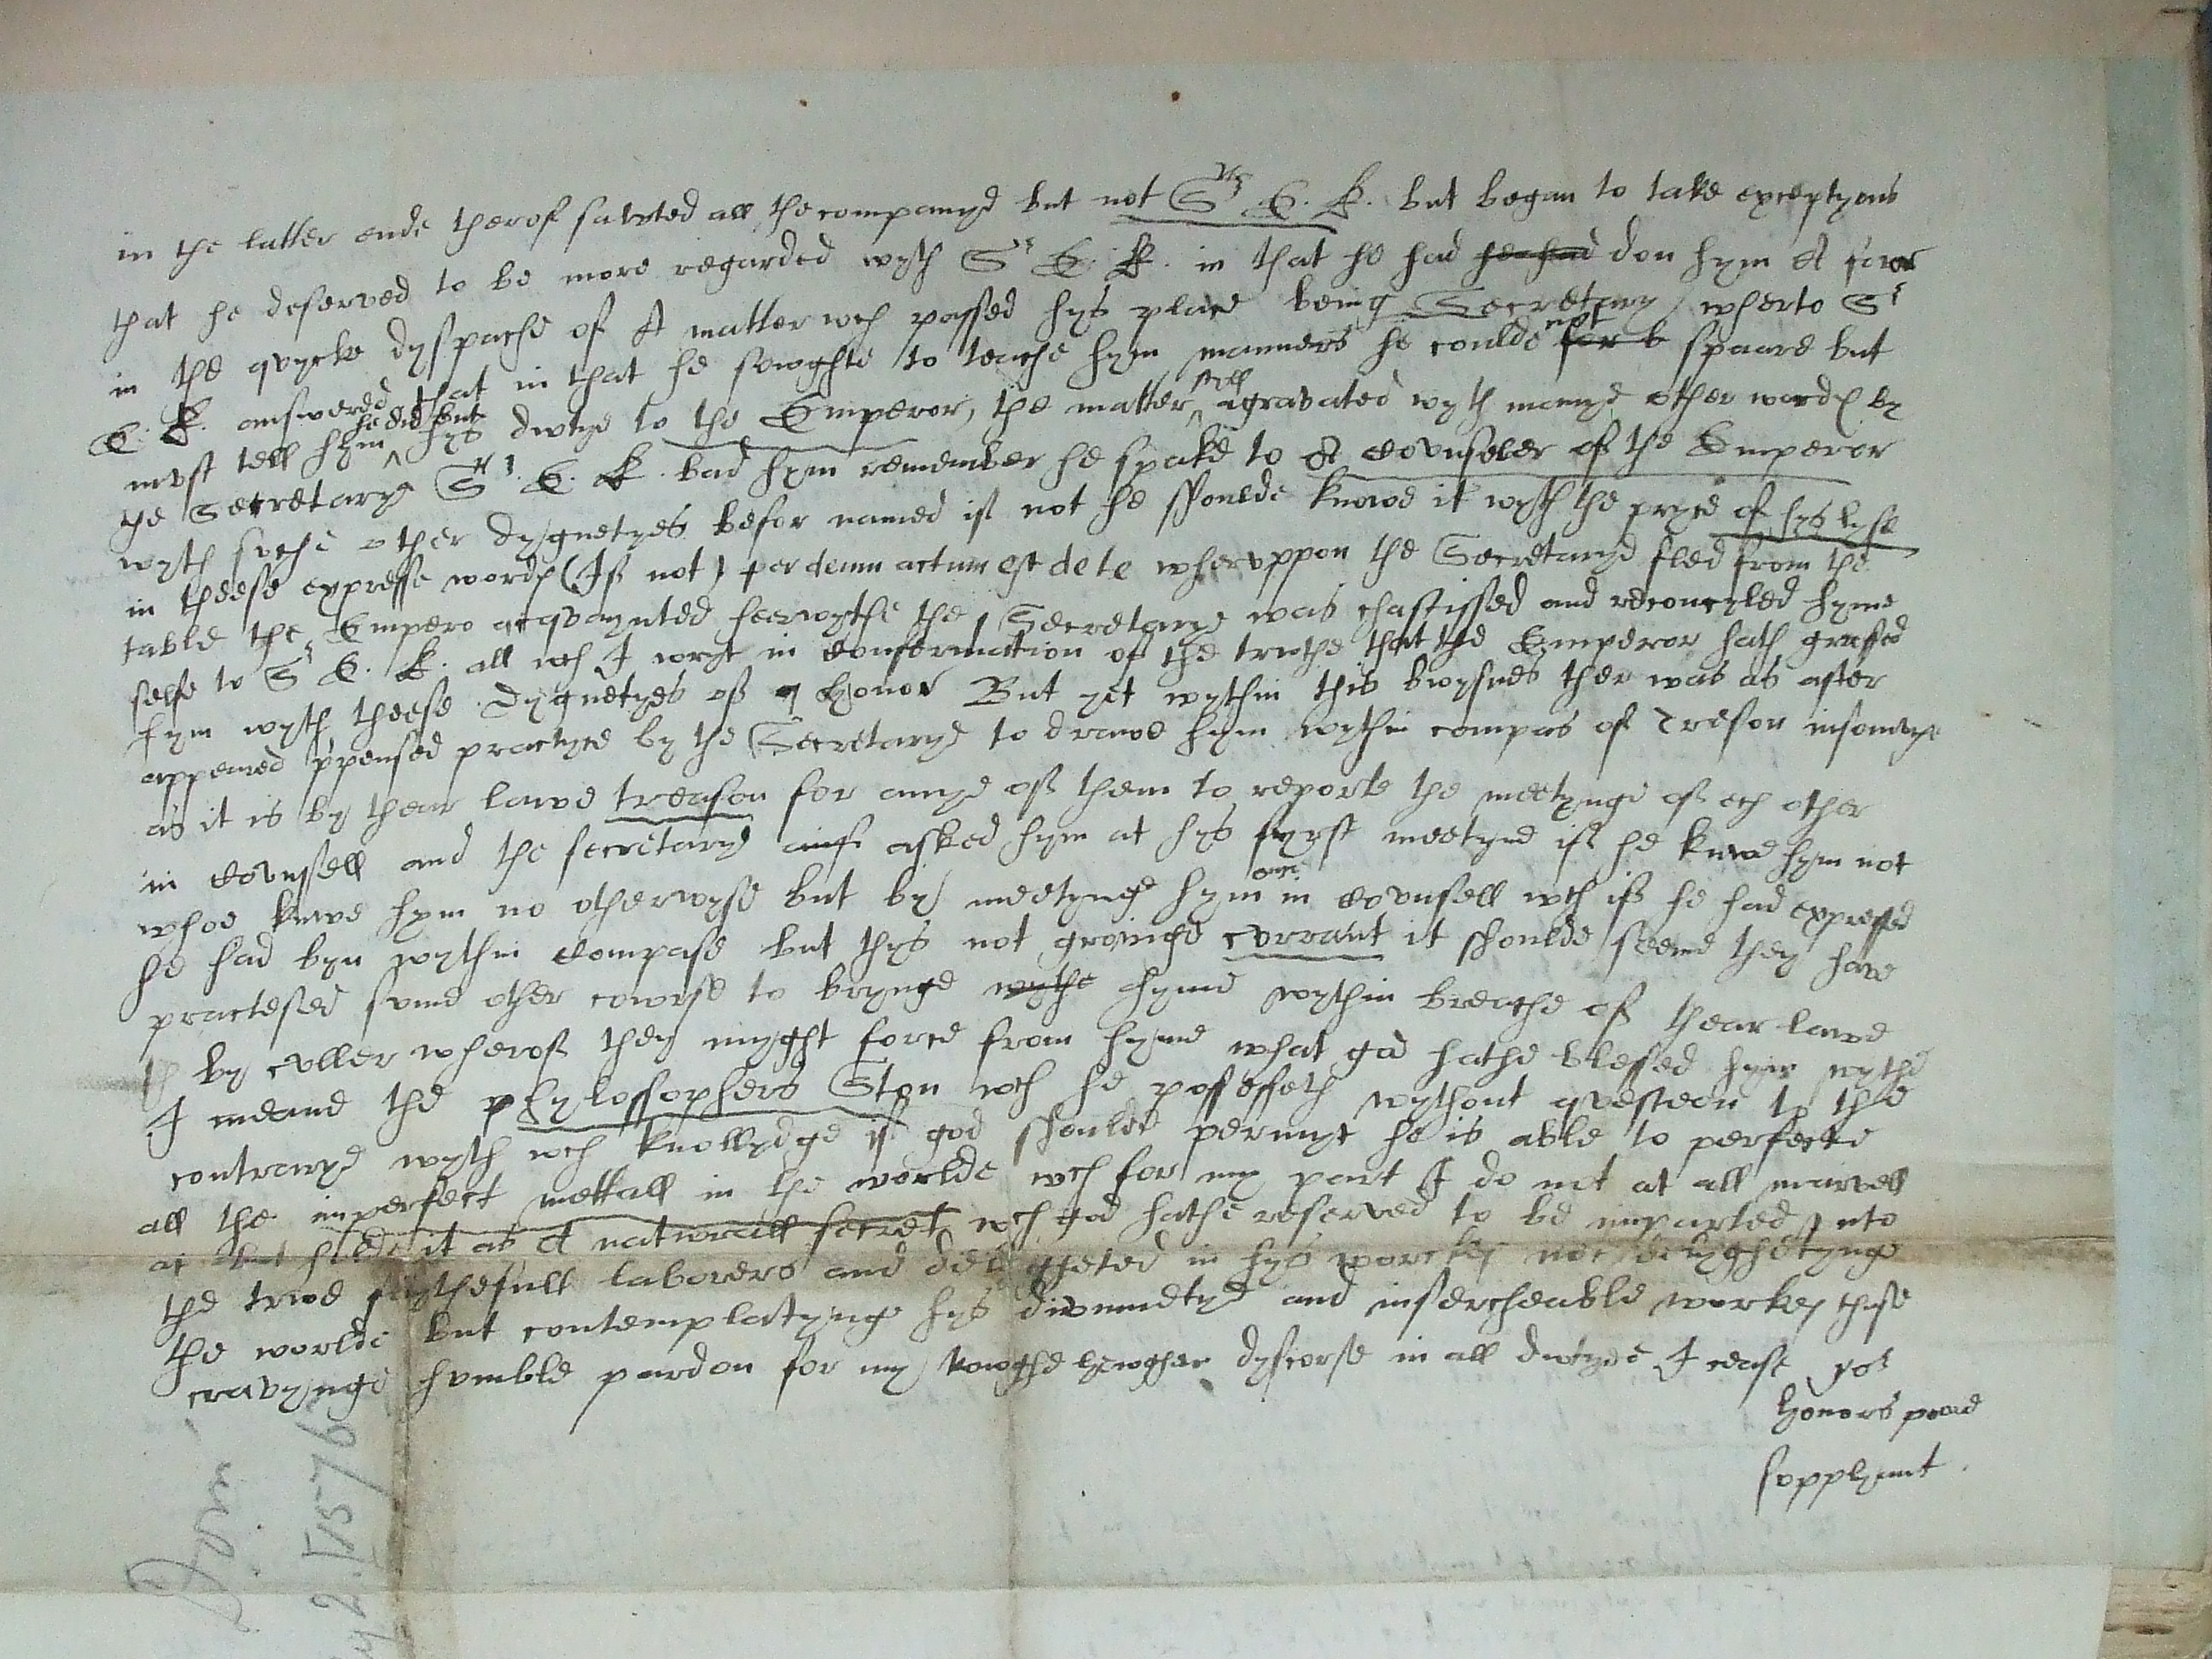 in the latter ende therof saluted all the companye but not Sr E. K. but began to take exceptyons
that he deserved to be more regarded wyth Sr E. K. in that he had he had don hym A favor
in the quycke dyspache of A matter wch passed hys place being Secretary wherto Sr
E. K. answered that in that he sowghte to teache hym manners he coulde not for b spaare but
must tell hym he did but hys dutye to the Emperor, the matter styll agravated wyth manye other words by
the Secretarye Sr. E. K. bad hym remember he spake to A counseler of the Emperor
wyth suche other dygnetyes befor named if not he shoulde knowe it wyth the pryce of hys lyfe
in theese expresse words (If not) per deum actum est de te wheruppon the Secretarye fled from the
table the Empero acquaynted heerwythe the Secretarye was chastissed and reconcyled hyme
selfe to Sr E. K. all wch I wryt in confermation of the truthe that the Emperor hath graced
hym wyth theese dygnetyes of honor But yet wythin this busynes ther was as after
appeared ppensed practyce by the Secretarye to drawe hym wythin compas of Treson insomuche
as it is by thear lawe treason for anye of them to reporte the meetynge of ech other
in counsell and the secretarye asked hym at hys fyrst meetyng if he knewe hym not
whoe knewe hym no otherwyse but by meetynge hym one in counsell wch if he had expressed
he had byn wythin compase but thys not groinge currant it shoulde seeme they have
practesed sume other cowrse to brynge wythe hyme wythin breache of thear lawe
by culler wherof they myght force from hyme what god hathe blessed hym wythe
I meane the phylossophers Ston wch he possesseth wythout questeon to the
contrarye wyth wch knolledge if god shoulde permyt he is able to perfecte
all the imperfect mettall in the worlde wch for my part I do not at all marvell
at but holde it as A naturall secret wch god hathe reserved to be imparted unto
the true faythefull laborers and delyghted in hys workes not delyghetynge
the worlde but contemplatynge hys divinnetye and insercheable workes thuse
cravynge humble pardon for my dyscorse in all dutye I cease yor
honors poore
supplyant.